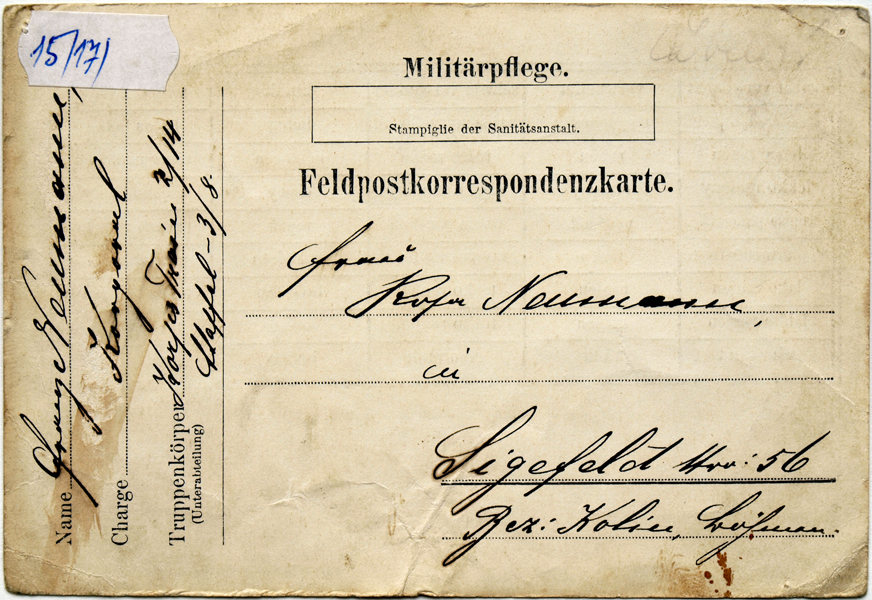 15/17/
Militärpflege.
Stampiglie der Sanitätsanstalt.
Feldpostkorrespondenzkarte.
Name Franz Neumann,
Charge Korporal
Truppenkörper Korps Train 2/14
(Unterabteilung) Staffel-3/8.
Rosa Neumann,
in
Sigefeldt Nro: 56
Bez: Kolin, Böhmen.